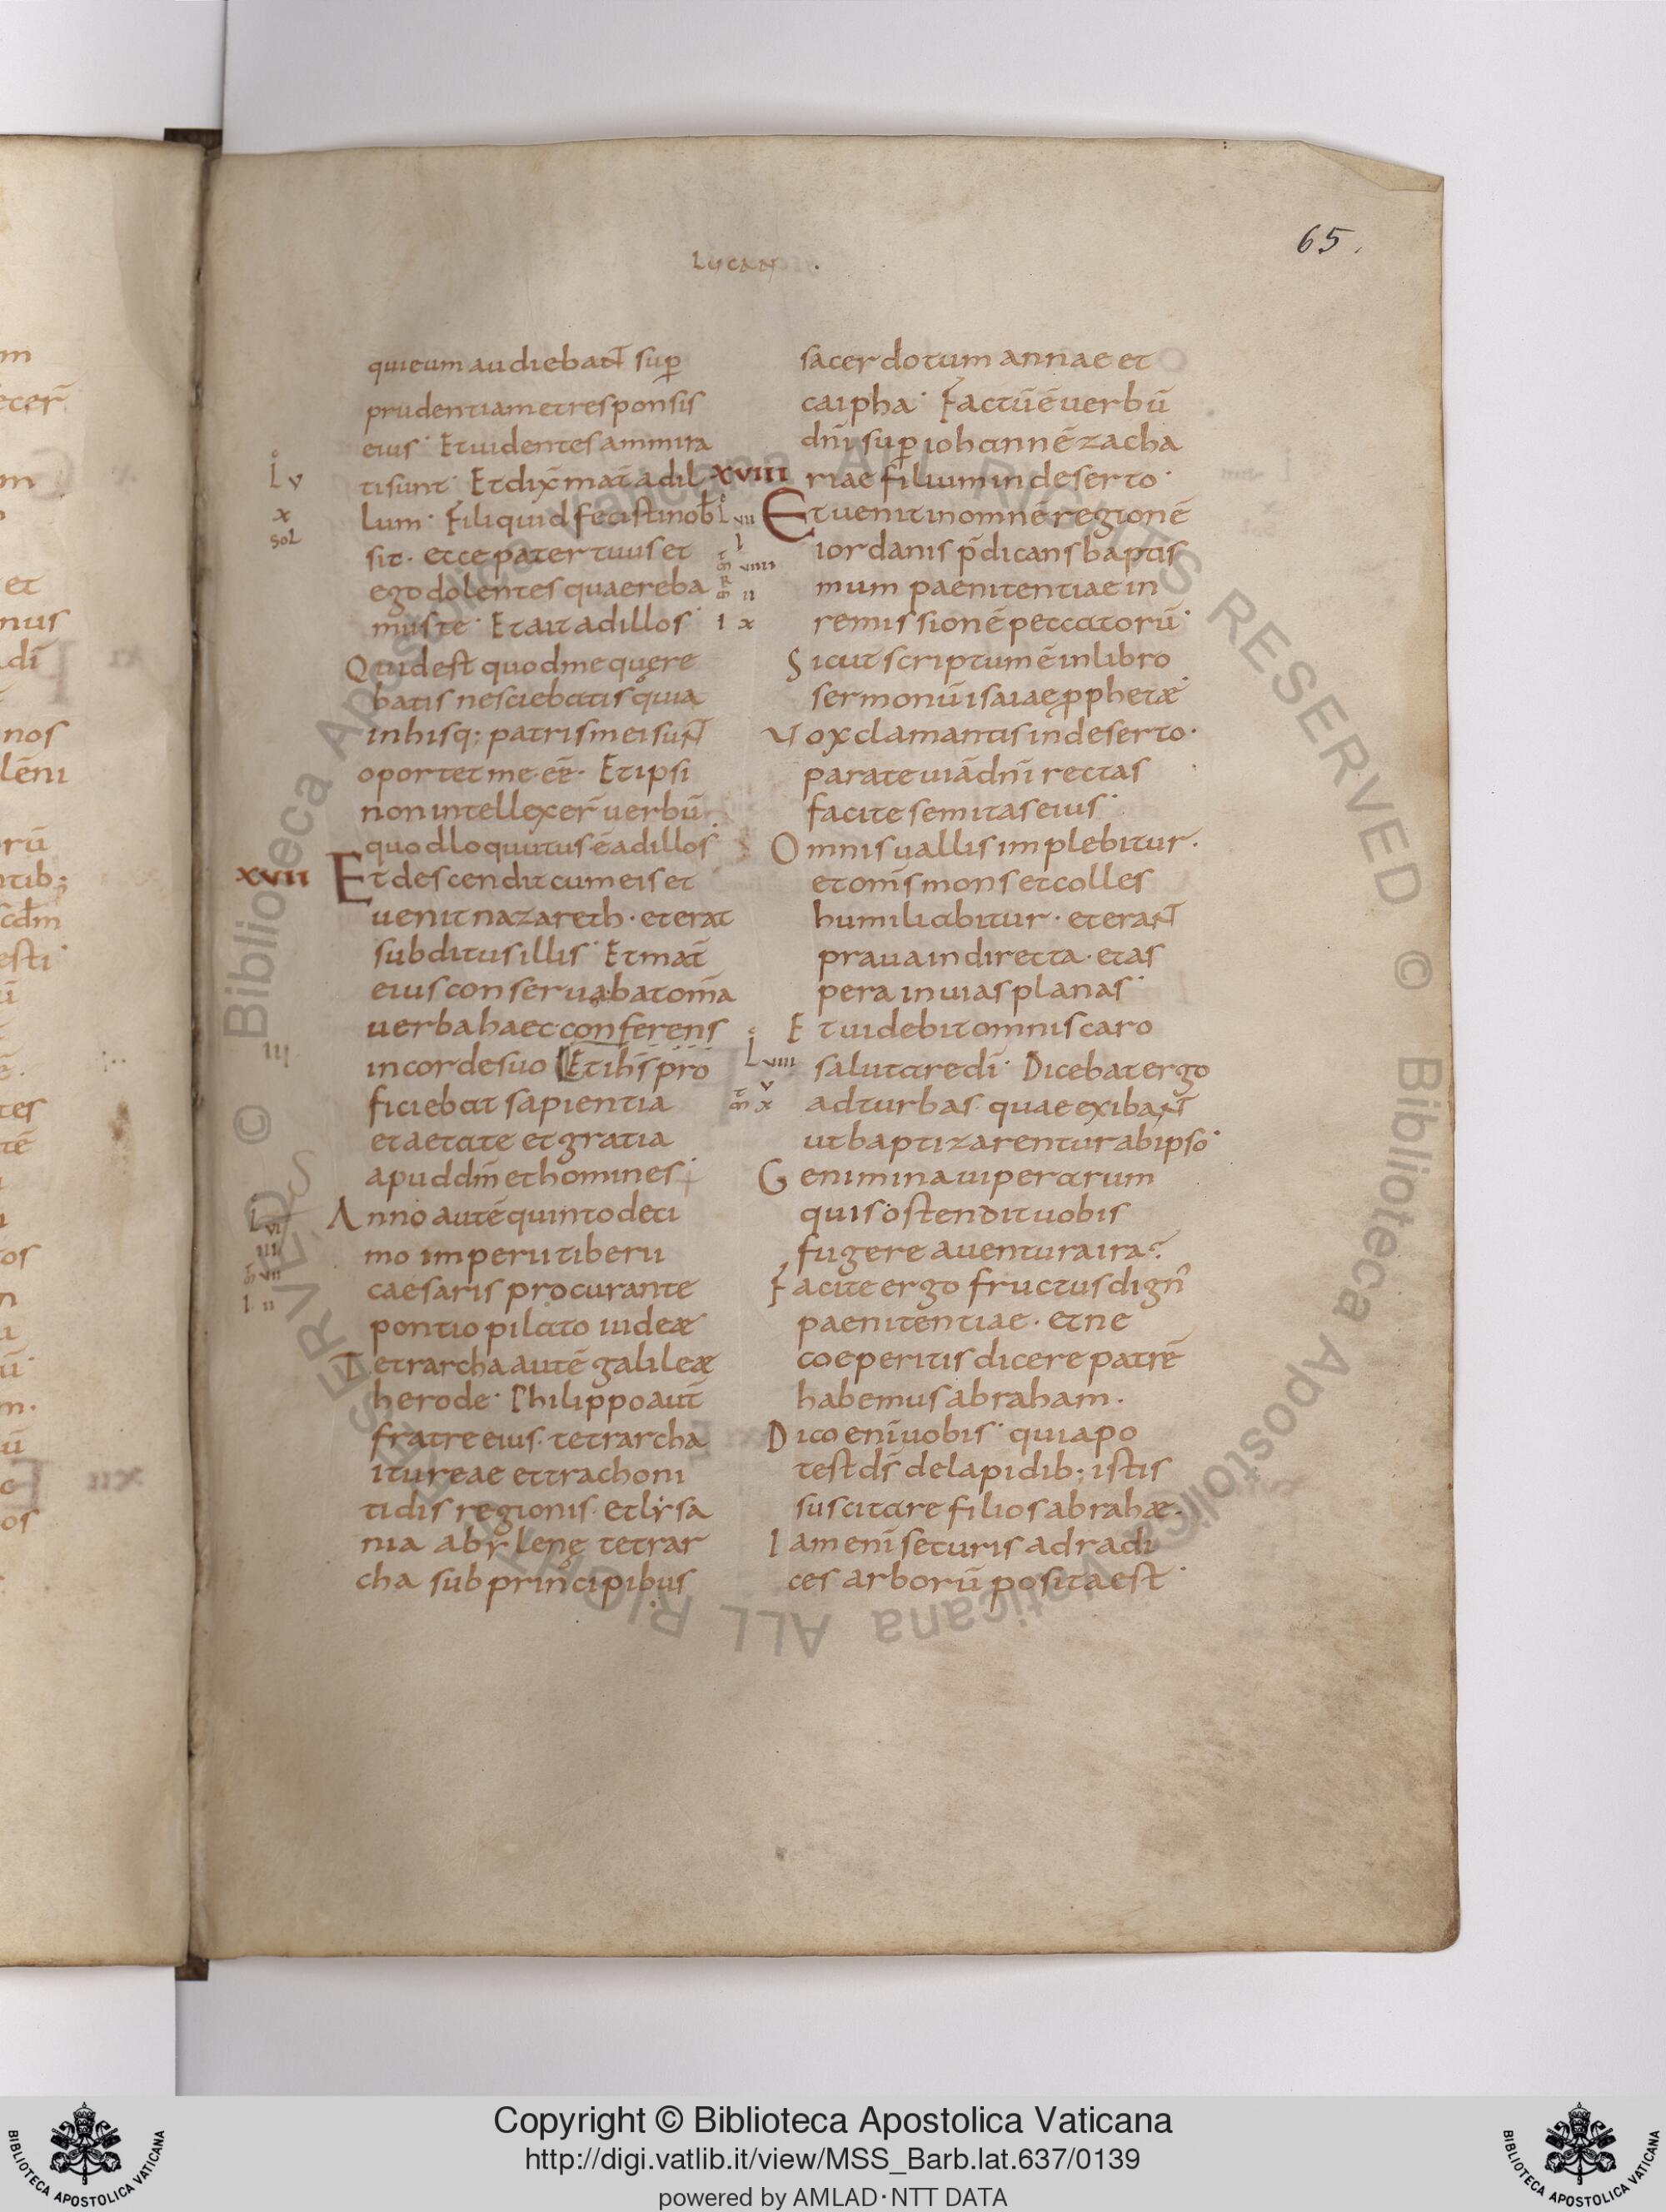 65.
LUCAN
quieum audiebant sup̄
prudentiam et responsis
eius· Et uidentes ammira
ti sunt· Et dix̄ mat̄ ad il
lum· Fili quid fecisti nob̄
sic· ecce pater tuus et
ego dolentes quaereba
mus te· Et ait ad illos·
Quid est quod me quęre
batis nesciebatis quia
in his q; patris mei sunt
oportet me·eē· Et ipsi
non intellexer̄ uerbū
quod loquutus ē ad illos·
XVII Et descendit cum eis et
uenit nazareth· et erat
subditus illis· Et mat̄
eius conseruabat om̄a
uerba haec·conferens
in corde suo Et ih̄s pro
ficiebat sapientia
et aetate et gratia
apud dm̄ et homines·
Anno autē quinto deci
mo imperii tiberii
caesaris procurante
pontio pilato iudeæ
Tetrarcha autē galileæ
herode· Philippo aut̄
fratre eius· tetrarcha
itureae et trachoni
tidis regionis· et lysa
nia abylenę tetrar
cha sub principibus
sacerdotum annae et
caipha· Factū ē uerbū
dn̄i sup̄ iohannē zacha
riae filium in deserto·
XVIII Et uenit in omnē regionē
iordanis p̄dicans baptis
mum paenitentiae in
remissionē peccatorū·
Sicut scriptum ē in libro
sermonū isaiae pphetæ·
Uox clamantis in deserto·
parate uiā dn̄i rectas
facite semitas eius·
Omnis uallis implebitur·
et om̄s mons et colles
humiliabitur· et erant
praua in directa· et as
pera in uias planas·
Et uidebit omnis caro
salutare dī· Dicebat ergo
ad turbas· quae exibant
ut baptizarentur ab ipso·
Genimina uiperarum
quis ostendit uobis
fugere a uentura ira?
Facite ergo fructus dign̄
paenitentiae· et ne
coeperitis dicere patrē
habemus abraham·
Dico enī uobis· quia po
test ds̄ de lapidib; istis
suscitare filios abrahæ·
Iam enī securis ad radi
ces arborū posita est·
L V
X
SOL
III
L VI
III
I II
L VII
I
VIIII
II
I X
L VIII
V
X
© Biblioteca Apostolica Vaticana ALL RIGHTS RESERVED
© Biblioteca Apostolica Vaticana ALL RIGHTS RESERVED
BIBLIOTECA APOSTOLICA VATICANA
Copyright © Biblioteca Apostolica Vaticana
http://digi.vatlib.it/view/MSS_Barb.lat.637/0139
powered by AMLAD·NTT DATA
BIBLIOTECA APOSTOLICA VATICANA